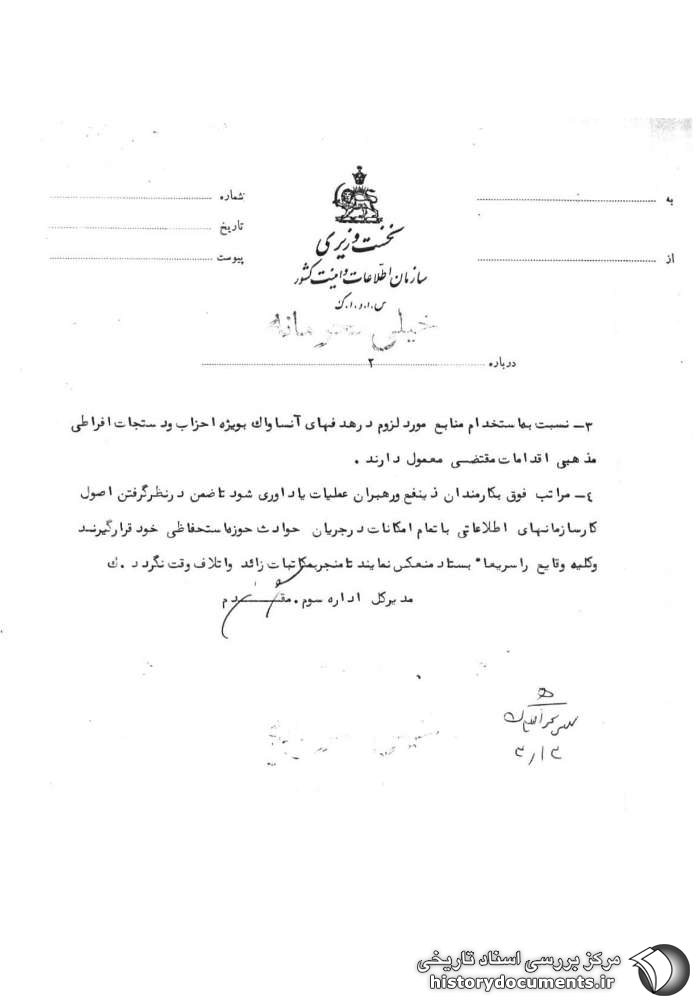 به
شماره
تاریخ
از
پیوست
نخست وزیری
سازمان اطلاعات و امنیت کشور
س.ا.و.ا.ک
خیلی محرمانه
درباره ۲
۳- نسبت به استخدام منابع مورد لزوم در هدفهای آنساواک بویژه احزاب و دستجات افراطی
مذهبی اقدامات مقتضی معمول دارند .
٤- مراتب فوق بکارمندان ذینفع ورهبران عملیات یادآوری شود تا ضمن درنظرگرفتن اصول
کارسازمانهای اطلاعاتی با تمام امکانات درجریان حوادث حوزه استحفاظی خود قرارگیرند
وکلیه وقایع راسریعا" بستاد منعکس نمایند تا منجربمکاتبات زائد واتلاف وقت نگردد .ك
مدیرکل اداره سوم . مقدم
۳/۳
مرکز بررسی اسناد تاریخی
historydocuments.ir